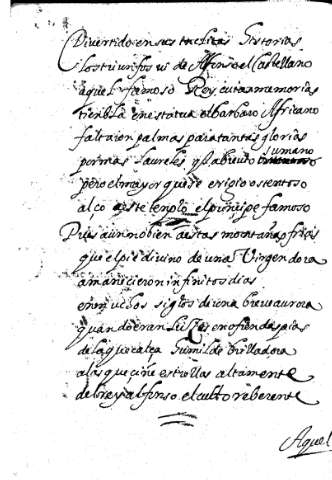 Divertido en sus inclitas Historias
los triunfos vi de Alfonso el Castellano
aquel famoso Rey, cuias memorias
tiembla en estatua el barbaro Africano
faltaron palmas para tantas glorias
por mas laureles q sumano
pero el mayor que se erigio ostentoso
alço aeste templo el principe famoso
Pues aun no bien aestas montañas frias
que el pie divino de una Virgen dora
amanecieron infinitos dias
en muchos siglos de una breve aurora
quando eran luzes en ofrendas pias
de la que calça humilde brilladora
alas que ciñe estrellas altamente
del rey alfonso el culto reberente
Aquel